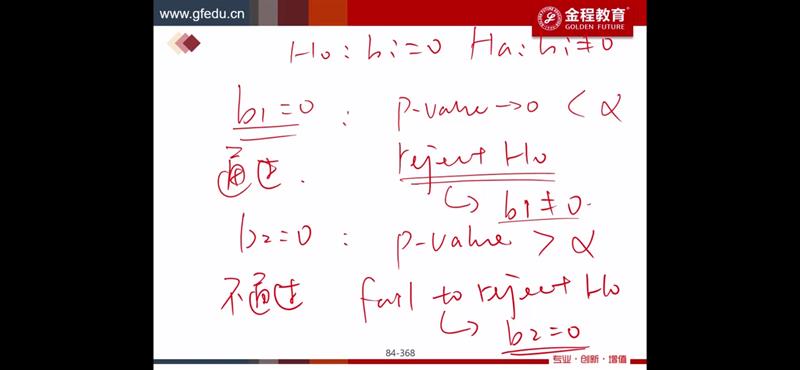 www.gfedu.cn
金程教育
GOLDEN FUTURE
H0: bi=0 Ha: bi≠0
b1=0 : p-value→0 < α
通过. reject H0
↳ b1≠0.
b2=0 : p-value > α
不通过 fail to reject H0
↳ b2=0
84-368
专业·创新·增值